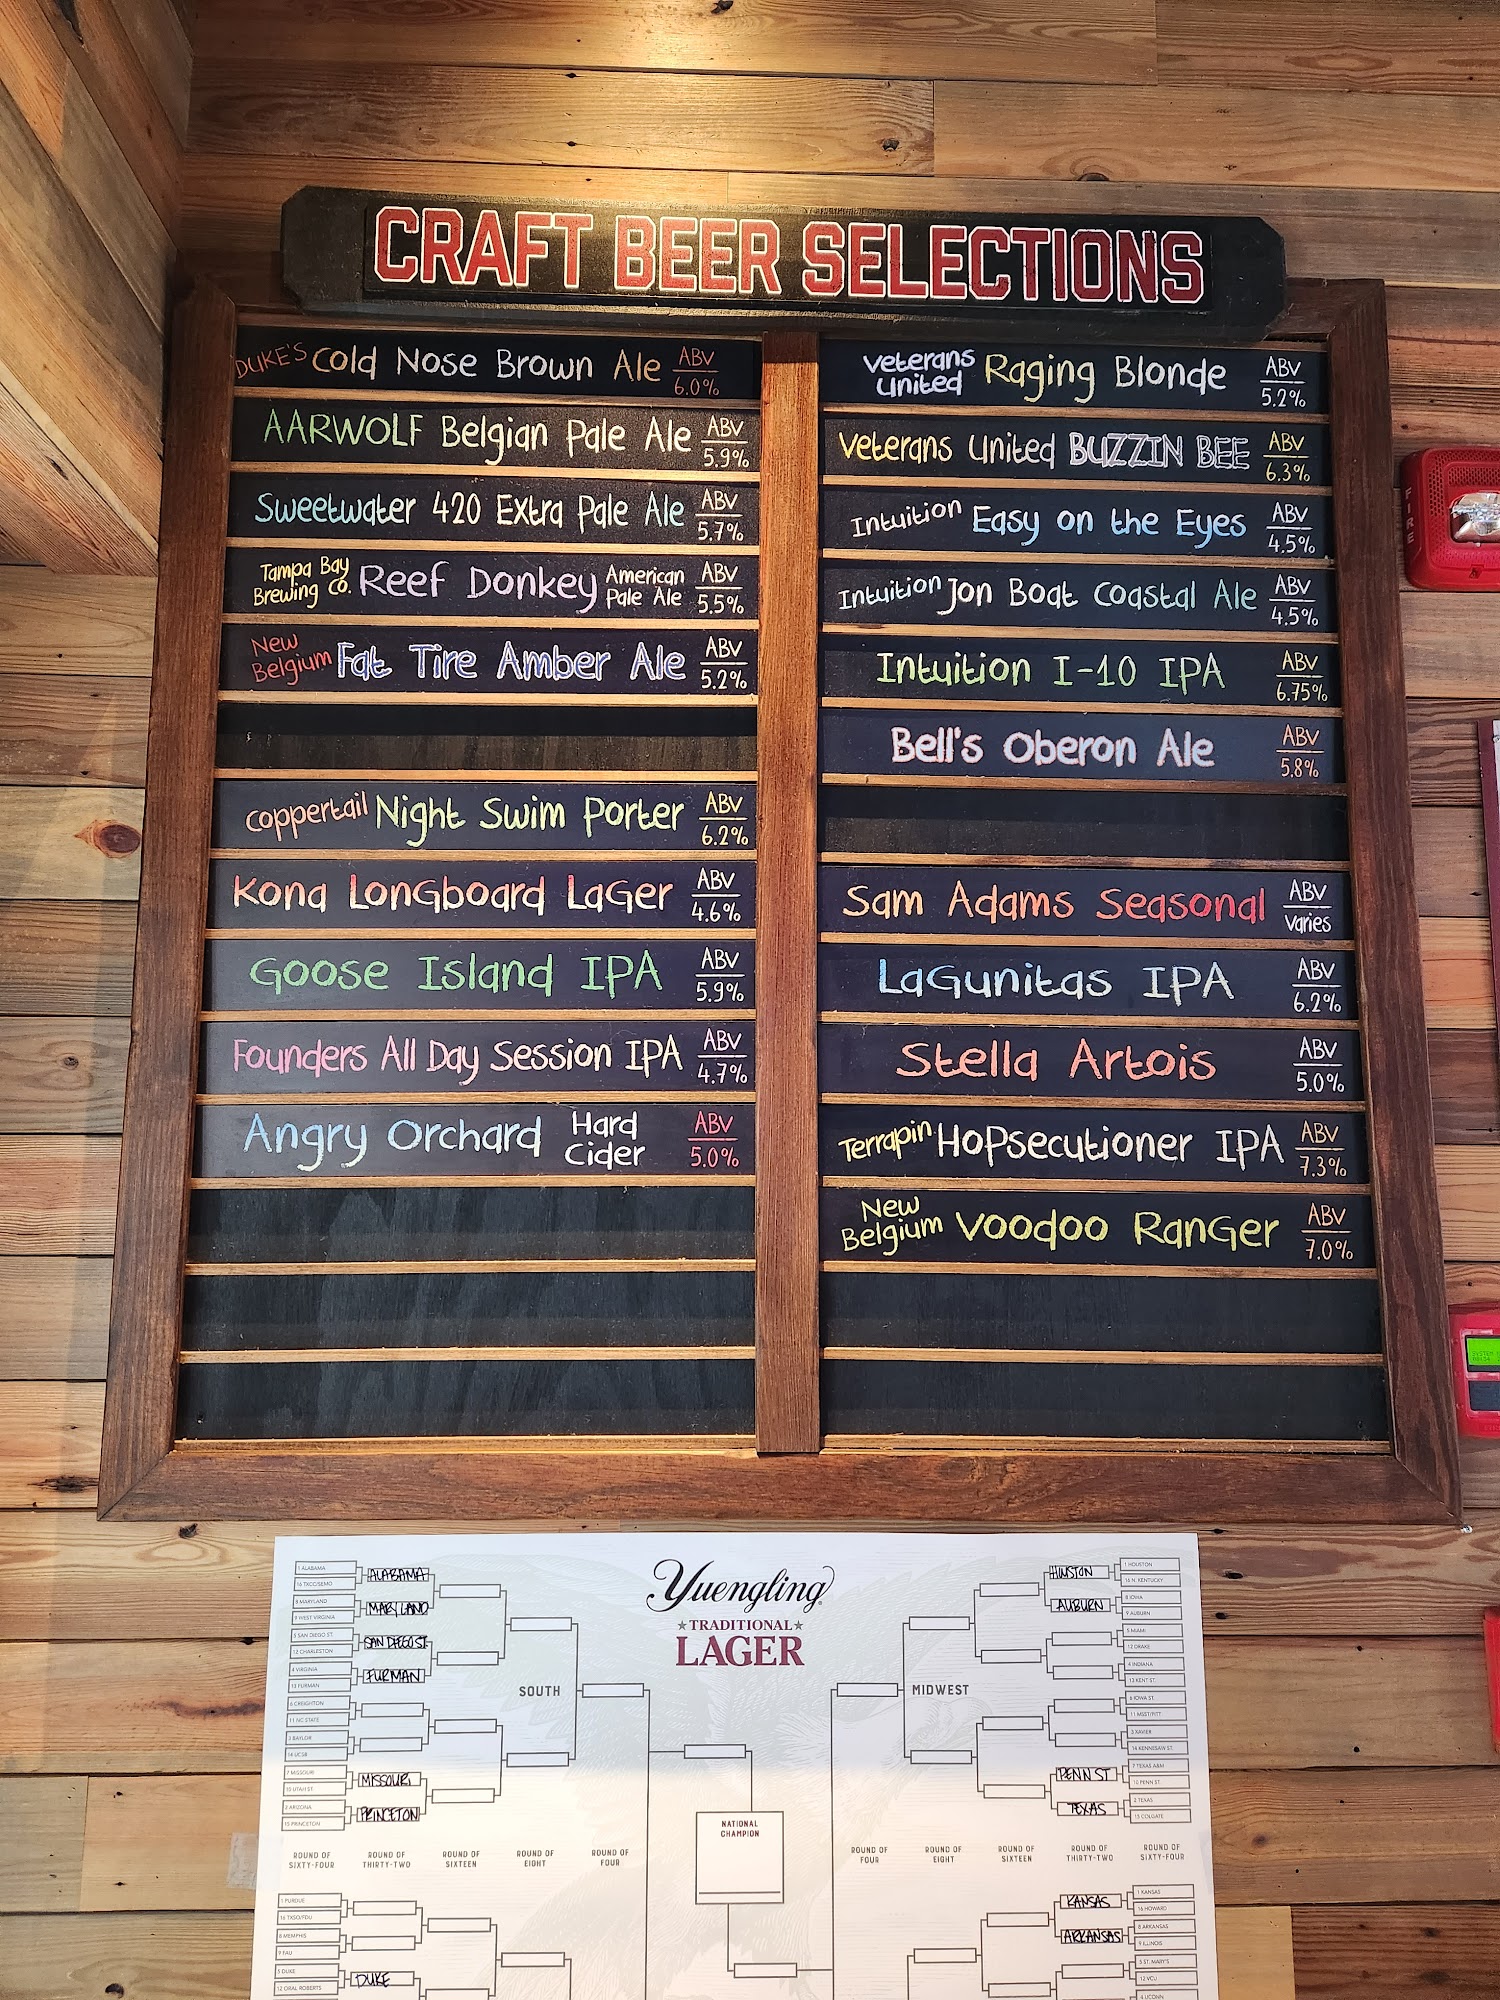 CRAFT BEER SELECTIONS
DUKE'S Cold Nose Brown Ale ABV 6.0%
AARWOLF Belgian Pale Ale ABV 5.9%
Sweetwater 420 Extra Pale Ale ABV 5.7%
Tampa Bay Brewing Co. Reef Donkey American Pale Ale ABV 5.5%
New Belgium Fat Tire Amber Ale ABV 5.2%
Coppertail Night Swim Porter ABV 6.2%
Kona Longboard Lager ABV 4.6%
Goose Island IPA ABV 5.9%
Founders All Day Session IPA ABV 4.7%
Angry Orchard Hard Cider ABV 5.0%
Veterans United Raging Blonde ABV 5.2%
Veterans United BUZZIN BEE ABV 6.3%
Intuition Easy on the Eyes ABV 4.5%
Intuition Jon Boat Coastal Ale ABV 4.5%
Intuition I-10 IPA ABV 6.75%
Bell's Oberon Ale ABV 5.8%
Sam Adams Seasonal ABV Varies
Lagunitas IPA ABV 6.2%
Stella Artois ABV 5.0%
Terrapin Hopsecutioner IPA ABV 7.3%
New Belgium Voodoo Ranger ABV 7.0%
FIRE
Yuengling
TRADITIONAL
LAGER
SOUTH
1 ALABAMA
16 TXCC/SEMO
8 MARYLAND
9 WEST VIRGINIA
5 SAN DIEGO ST.
12 CHARLESTON
4 VIRGINIA
13 FURMAN
6 CREIGHTON
11 NC STATE
3 BAYLOR
14 UCSB
7 MISSOURI
10 UTAH ST.
2 ARIZONA
15 PRINCETON
ALABAMA
MARYLAND
SAN DIEGO ST.
FURMAN
MISSOURI
PRINCETON
MIDWEST
HUSTON
AUBURN
PENN ST
TEXAS
1 HOUSTON
16 N. KENTUCKY
8 IOWA
9 AUBURN
5 MIAMI
12 DRAKE
4 INDIANA
13 KENT ST.
6 IOWA ST.
11 MSST/PITT
3 XAVIER
14 KENNESAW ST.
7 TEXAS A&M
10 PENN ST.
2 TEXAS
15 COLGATE
NATIONAL
CHAMPION
ROUND OF SIXTY-FOUR
ROUND OF THIRTY-TWO
ROUND OF SIXTEEN
ROUND OF EIGHT
ROUND OF FOUR
ROUND OF FOUR
ROUND OF EIGHT
ROUND OF SIXTEEN
ROUND OF THIRTY-TWO
ROUND OF SIXTY-FOUR
1 PURDUE
16 TXSO/FDU
8 MEMPHIS
9 FAU
5 DUKE
12 ORAL ROBERTS
DUKE
KANSAS
ARKANSAS
1 KANSAS
16 HOWARD
8 ARKANSAS
9 ILLINOIS
5 ST. MARY'S
12 VCU
4 UCONN